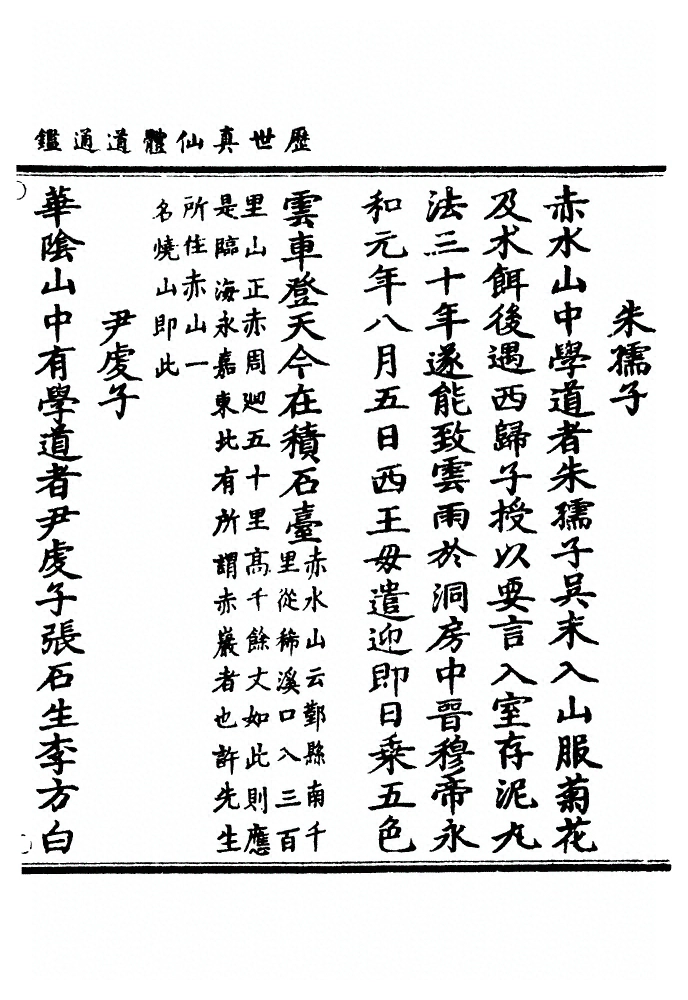 歷世真仙體道通鑑
朱孺子
赤水山中學道者朱孺子吳末入山服菊花
及术餌後遇西歸子授以要言入室存泥丸
法三十年遂能致雲雨於洞房中晉穆帝永
和元年八月五日西王母遣迎即日乘五色
雲車登天今在積石臺
赤水山云鄞縣南千
里從稀溪口入三百
里山正赤周廻五十里高千餘丈如此則應
是臨海永嘉東北有所謂赤巖者也許先生
所住赤山一
名燒山即此
尹虔子
華陰山中有學道者尹虔子張石生李方白